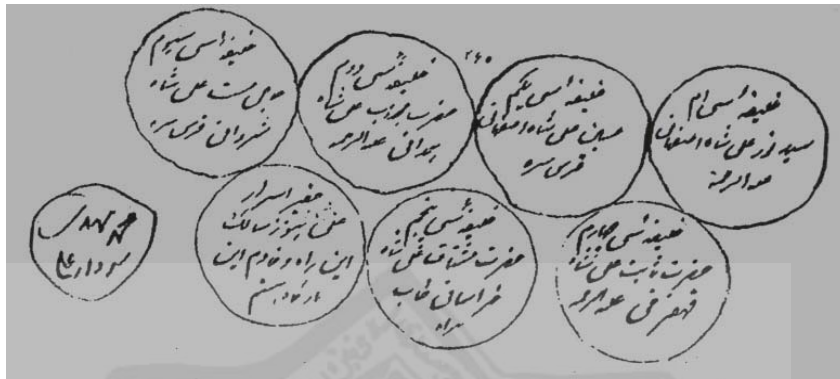 ۲۶۵
خلیفه سی ام
سید نور علی شاه اصفهانی
علیه الرحمة
خلیفه سی یکم
حسین علی شاه اصفهانی
قدس سره
خلیفه سی دوم
حضرت مجذوب علی شاه
همدانی علیه الرحمه
خلیفه سی سیوم
حاجی مست علی شاه
شیروانی قدس سره
خلیفه سی چهارم
حضرت ثابت علی شاه
قهفرخی علیه الرحمه
خلیفه سی پنجم
حضرت مشتاق علی شاه
خراسانی طاب
ثراه
فقیر اسرار
علی
این راه و خادم این